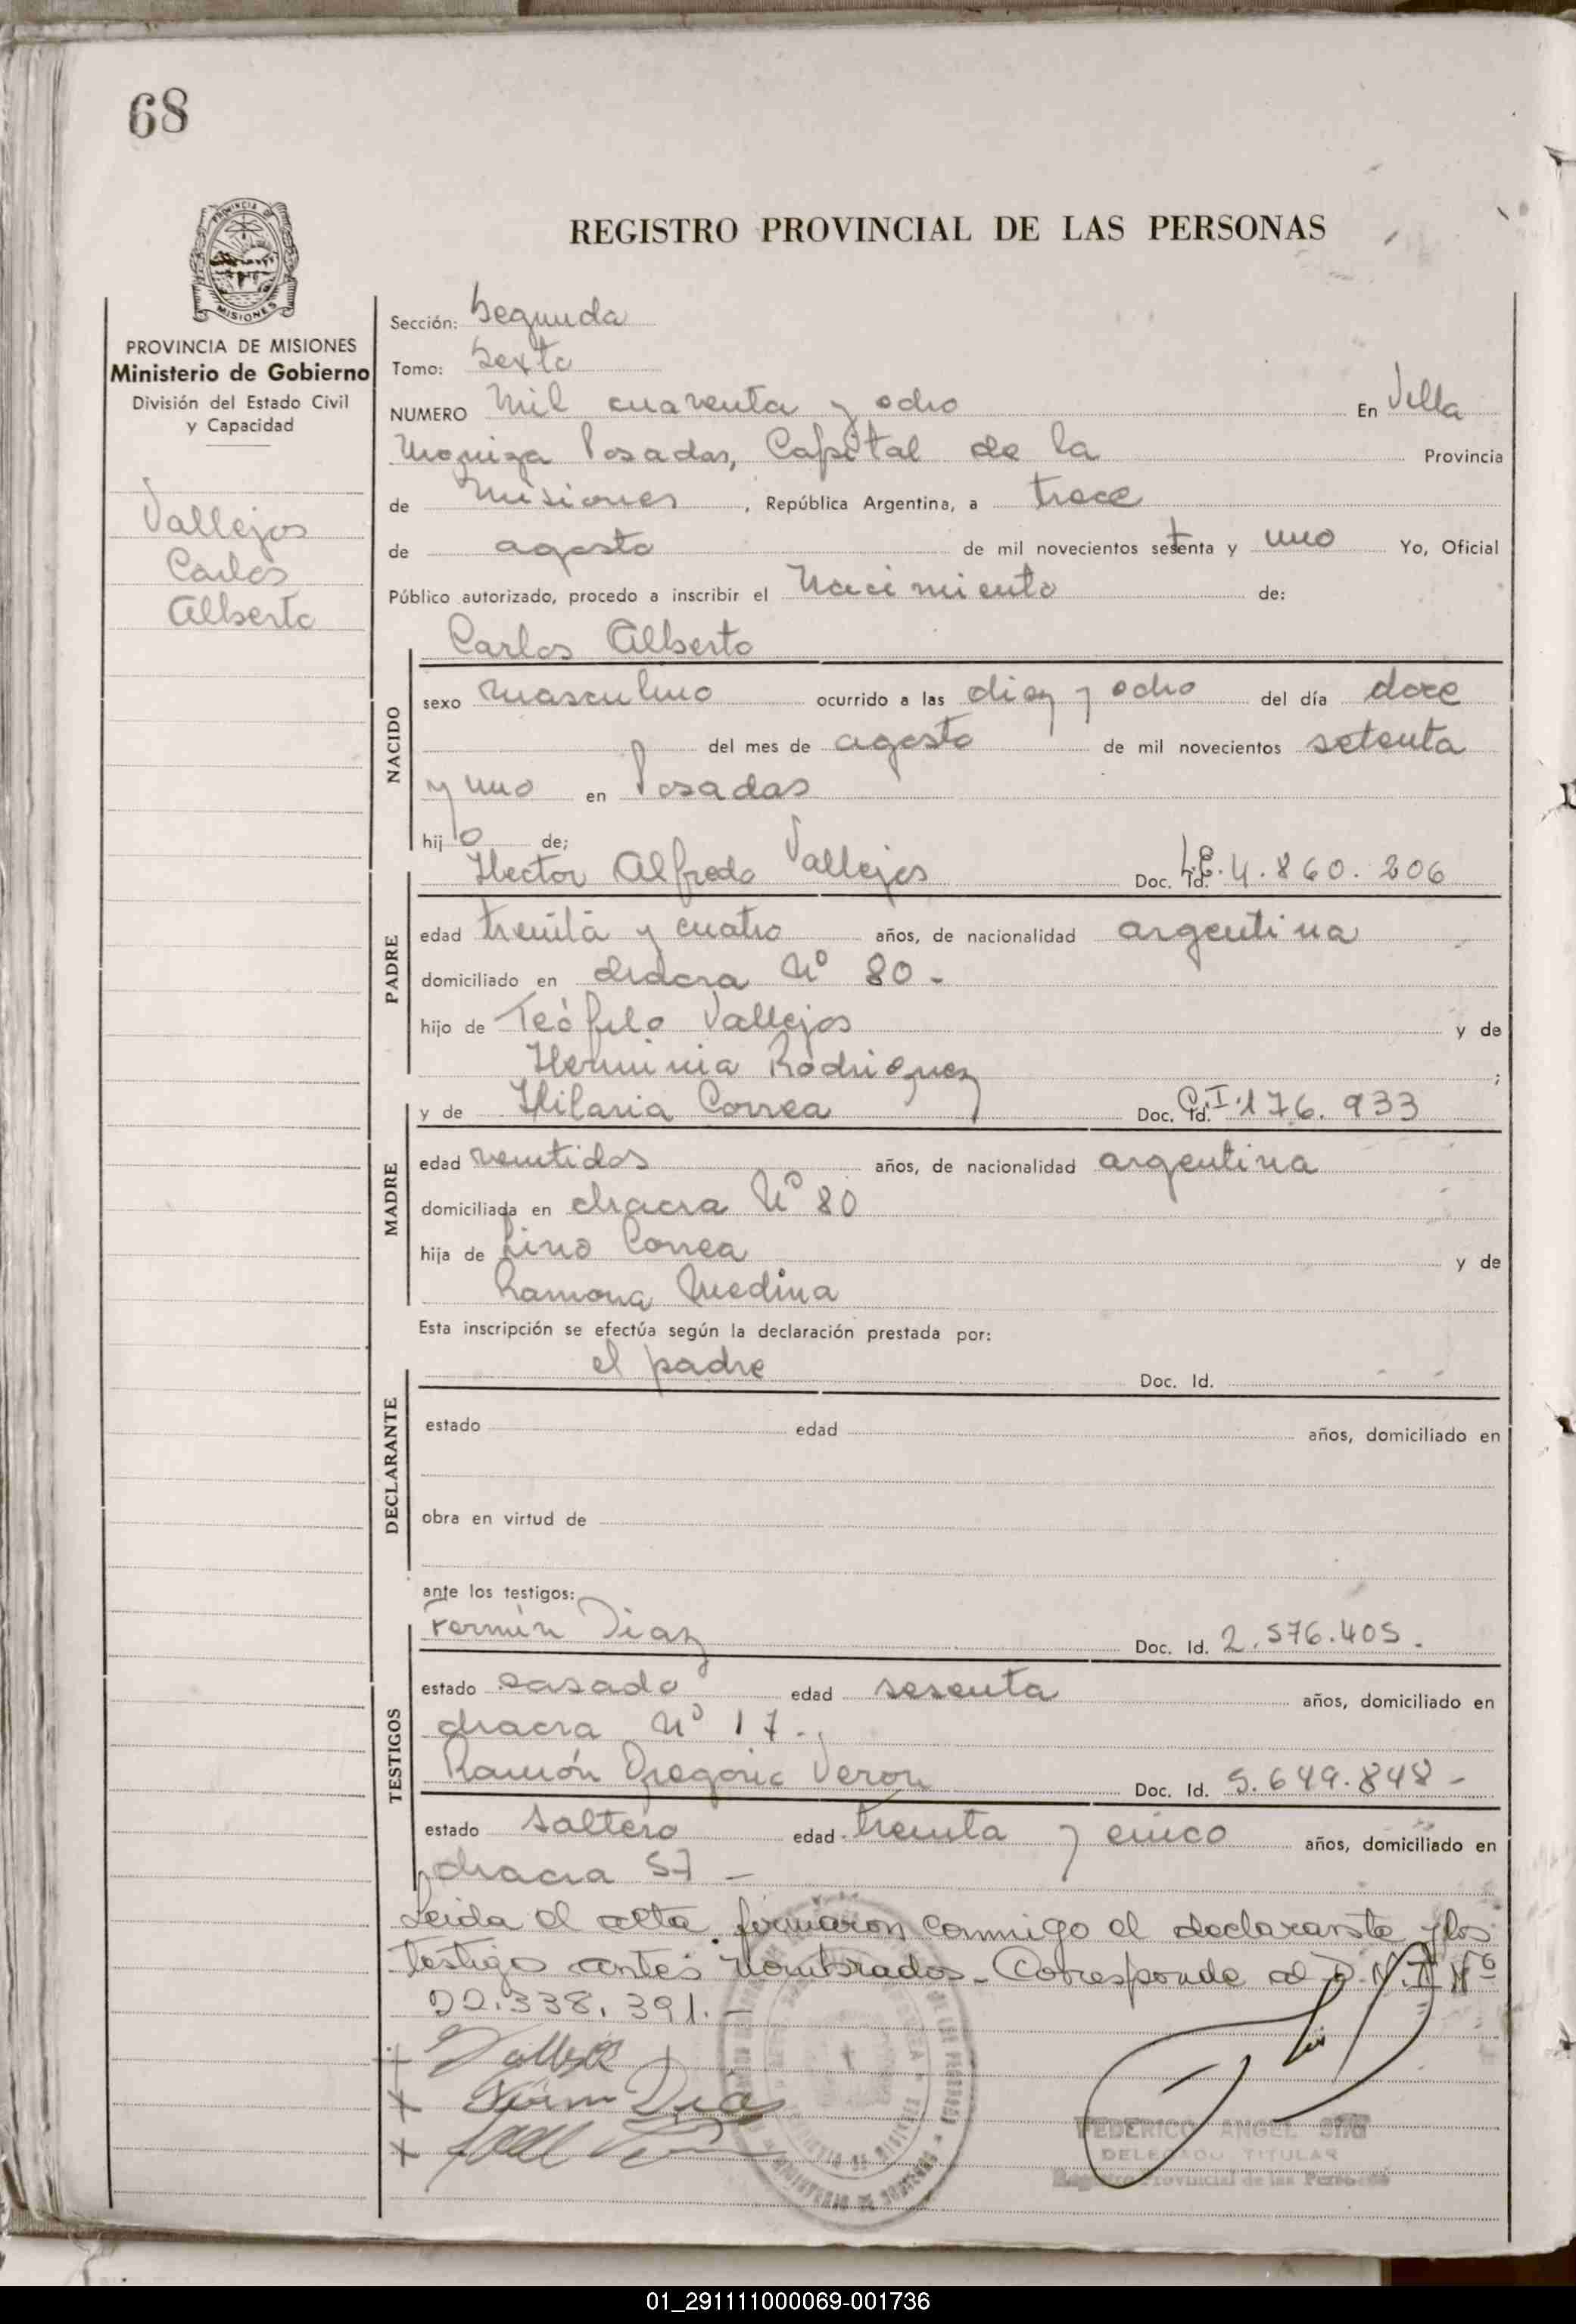 68
PROVINCIA DE
MISIONES
PROVINCIA DE MISIONES
Ministerio de Gobierno
División del Estado Civil
y Capacidad
Vallejos
Carlos
Alberto
REGISTRO PROVINCIAL DE LAS PERSONAS
Sección: Segunda
Tomo: Sexto
NUMERO Mil cuarenta y ocho En Villa
Urquiza Posadas, Capital de la Provincia
de Misiones, República Argentina, a trece
de agosto de mil novecientos setenta y uno Yo, Oficial
Público autorizado, procedo a inscribir el Nacimiento de:
Carlos Alberto
NACIDO
sexo masculino ocurrido a las diez y ocho del día doce
del mes de agosto de mil novecientos setenta
y uno en Posadas
hijo de;
Hector Alfredo Vallejos Doc. Id. L.E. 4.860.206
PADRE
edad treinta y cuatro años, de nacionalidad argentina
domiciliado en chacra Nº 80 -
hijo de Teófilo Vallejos y de
Herminia Rodriguez ;
y de Hilaria Correa Doc. Id. C.I. 176.933
MADRE
edad veintidos años, de nacionalidad argentina
domiciliada en chacra Nº 80
hija de Lino Correa y de
Ramona Medina
Esta inscripción se efectúa según la declaración prestada por:
el padre Doc. Id.
DECLARANTE
estado edad años, domiciliado en
obra en virtud de
ante los testigos:
Fermín Diaz Doc. Id. 2.576.405.
TESTIGOS
estado casado edad sesenta años, domiciliado en
chacra Nº 17 -
Ramón Gregorio Veron Doc. Id. 5.649.848 -
estado soltero edad treinta y cinco años, domiciliado en
chacra 57 -
Leida el acta firmaron conmigo el declarante y los
testigos antes nombrados - Corresponde al D.N.I Nº
22.338.391. -
FEDERICO ANGEL
DELEGADO TITULAR
Registro Provincial de las Personas
01_291111000069-001736